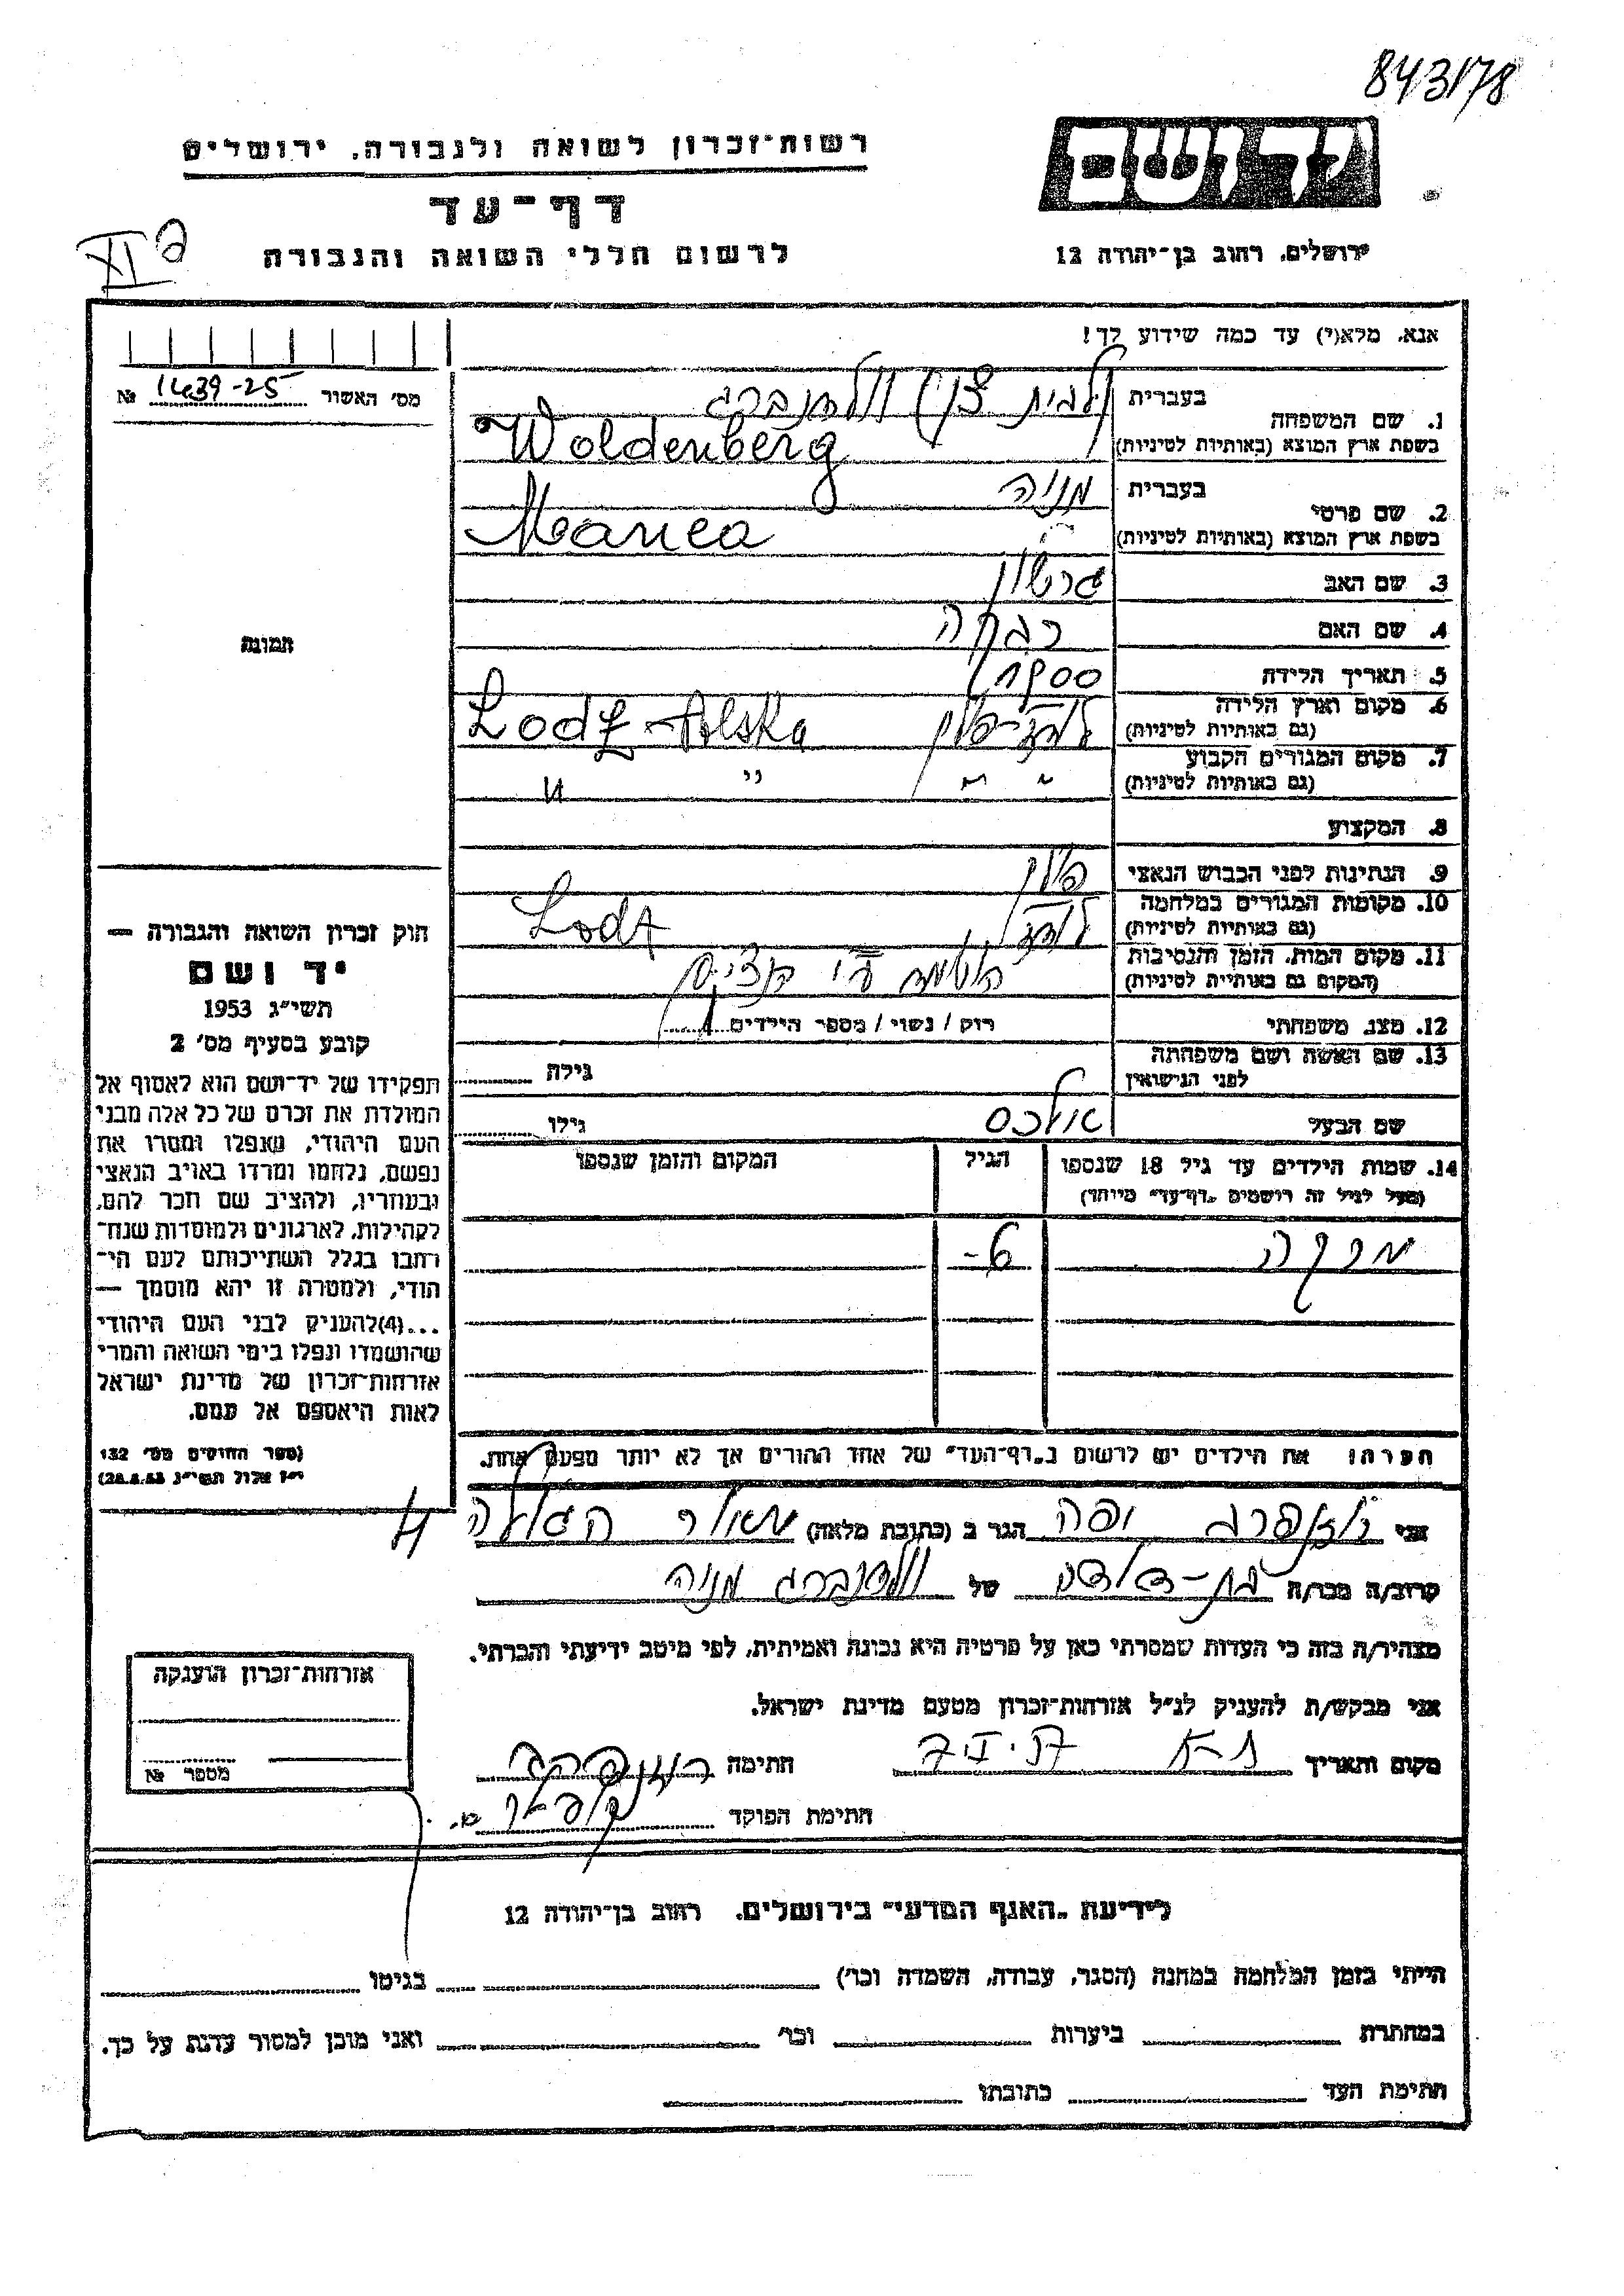 843/78
יד ושם
רשות־זכרון לשואה ולגבורה, ירושלים
דף־עד
לרשום חללי השואה והגבורה
ירושלים, רחוב בן־יהודה 12
אנא, מלא(י) עד כמה שידוע לך!
מס' האשור 1439-25 №
1. שם המשפחה
בעברית וולדנברג
בשפת ארץ המוצא (באותיות לטיניות) Woldenberg
2. שם פרטי
בעברית מניה
בשפת ארץ המוצא (באותיות לטיניות) Manea
3. שם האב גרשון
4. שם האם רבקה
5. תאריך הלידה 1900
6. מקום וארץ הלידה לודז'־פולין Lodz - Polska
(גם באותיות לטיניות)
7. מקום המגורים הקבוע " " " "
(גם באותיות לטיניות)
8. המקצוע
9. הנתינות לפני הכבוש הנאצי פולין
10. מקומות המגורים במלחמה לודז' Lodz
(גם באותיות לטיניות)
11. מקום המות, הזמן והנסיבות
(המקום גם באותיות לטיניות)
12. מצב משפחתי רוק / נשוי / מספר הילדים 1
13. שם האשה ושם משפחתה
לפני הנישואין גילה
שם הבעל גילו
14. שמות הילדים עד גיל 18 שנספו הגיל המקום והזמן שנספו
(מעל לגיל זה רושמים "דף־עד" מיוחד)
6-
הערה: את הילדים יש לרשום ב"דף־העד" של אחד ההורים אך לא יותר מפעם אחת.
תמונה
חוק זכרון השואה והגבורה —
יד ושם
תשי"ג 1953
קובע בסעיף מס' 2
תפקידו של יד־ושם הוא לאסוף אל
המולדת את זכרם של כל אלה מבני
העם היהודי, שנפלו ומסרו את
נפשם, נלחמו ומרדו באויב הנאצי
ובעוזריו, ולהציב שם וזכר להם,
לקהילות, לארגונים ולמוסדות שנח־
רבו בגלל השתייכותם לעם הי־
הודי, ולמטרה זו יהא מוסמך —
...(4)להעניק לבני העם היהודי
שהושמדו ונפלו בימי השואה והמרי
אזרחות־זכרון של מדינת ישראל
לאות היאספם אל עמם.
(ספר החוקים מס' 132
י"ז אלול תשי"ג 28.8.53)
אני יפה הגר ב (כתובת מלאה)
קרוב/ה מכר/ה בת-דודה של וולדנברג מניה
מצהיר/ה בזה כי העדות שמסרתי כאן על פרטיה היא נכונה ואמיתית, לפי מיטב ידיעתי והכרתי.
אני מבקש/ת להעניק לנ"ל אזרחות־זכרון מטעם מדינת ישראל.
מקום ותאריך ת-א חתימה
חתימת הפוקד
אזרחות־זכרון הוענקה
מספר №
לידיעת "האגף המדעי" בירושלים, רחוב בן־יהודה 12
הייתי בזמן המלחמה במחנה (הסגר, עבודה, השמדה וכו') בגיטו
במחתרת ביערות וכו' ואני מוכן למסור עדות על כך.
חתימת העד כתובתו